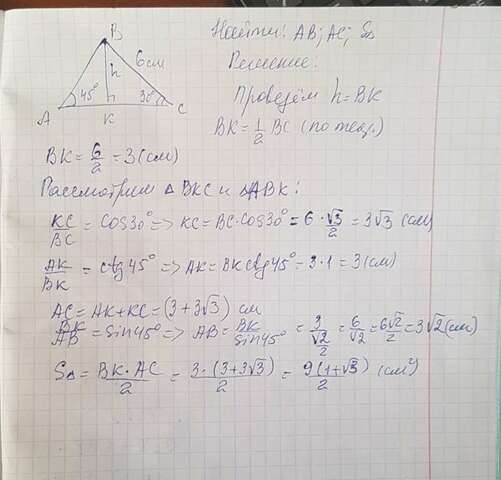 Найти: AB; AC; S△
Решение:
B
6 см
h
45°
30°
A
K
C
Проведём h = BK
BK = 1/2 BC (по теор.)
BK = 6/2 = 3 (см)
Рассмотрим △ BKC и △ABK:
KC/BC = cos30° => KC = BC·cos30° = 6·√3/2 = 3√3 (см)
AK/BK = ctg 45° => AK = BK ctg 45° = 3·1 = 3 (см)
AC = AK + KC = (3 + 3√3) см
BK/AB = sin45° => AB = BK/sin45° = 3/(√2/2) = 6/√2 = 6√2/2 = 3√2 (см)
S△ = BK·AC/2 = 3·(3+3√3)/2 = 9(1+√3)/2 (см²)